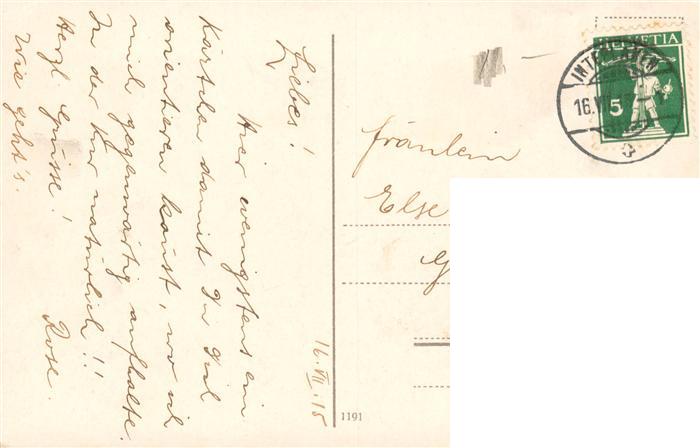 Liebes!
Hier wenigstens ein
Kärtchen damit Du Dich
orientieren kannst, wo ich
mich gegenwärtig aufhalte.
In der Kur natürlich!!
Herzl. Grüsse! Rose.
Wie geht's.
16. VII. 15
1191
Fräulein
Else
HELVETIA
5
INTERLAKEN
16. VII